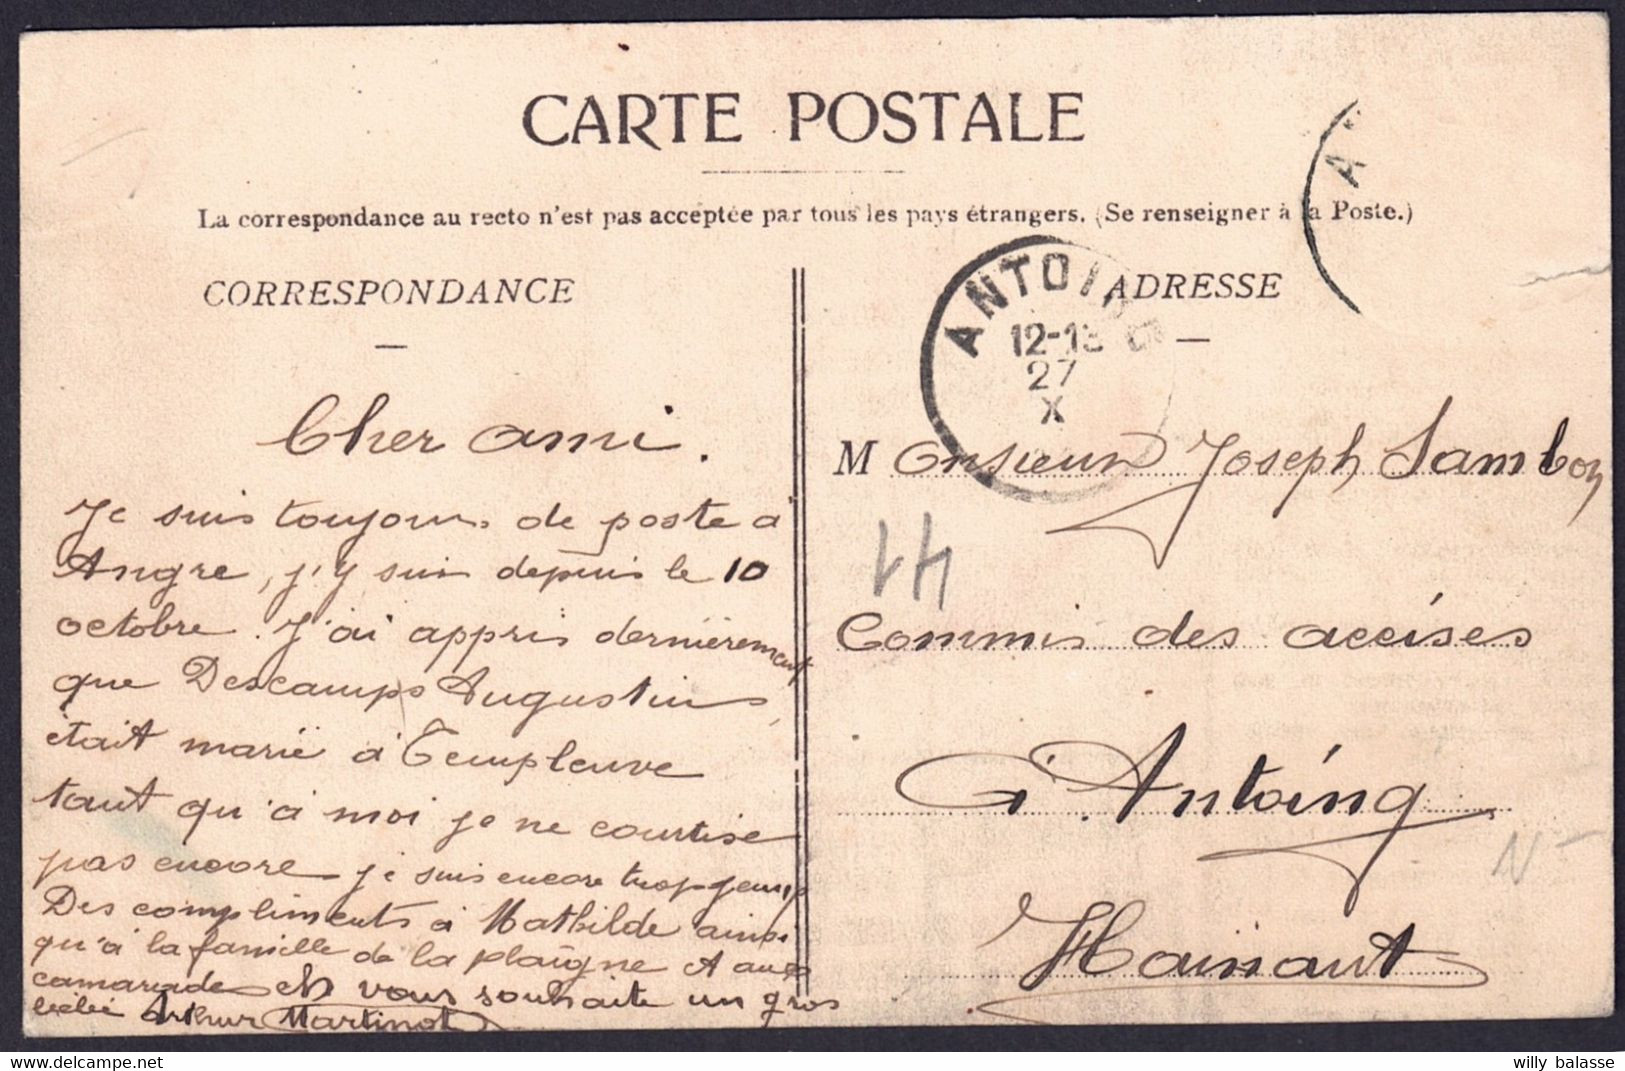 CARTE POSTALE
La correspondance au recto n'est pas acceptée par tous les pays étrangers. (Se renseigner à la Poste.)
CORRESPONDANCE
Cher ami.
Je suis toujours de poste à
Angre, j'y suis depuis le 10
octobre. J'ai appris dernièrement
que Descamps Augustin
était marié à Templeuve
tant qu'à moi je ne courtise
pas encore je suis encore trop jeune
Des compliments à Mathilde ainsi
qu'à la famille de la plaigne et aux
camarades et vous souhaite un gros
bébé Arthur Martinot
ADRESSE
ANTOING
12-13
27
X
A
Monsieur Joseph Sambon
Commis des accises
à Antoing
Hainaut
14
N-
willy balasse
Delcampe.net